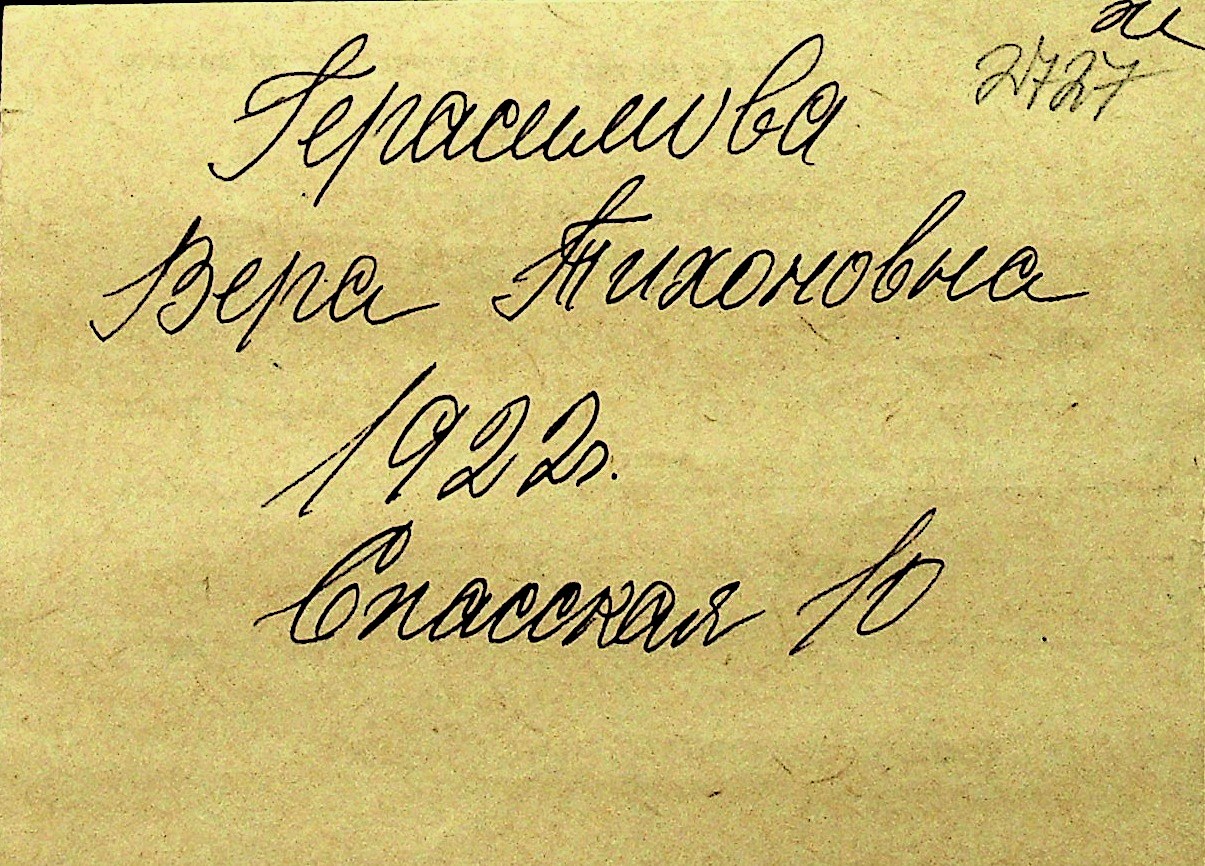 2727
Герасимова
Вера Тихоновна
1922г.
Спасская 10